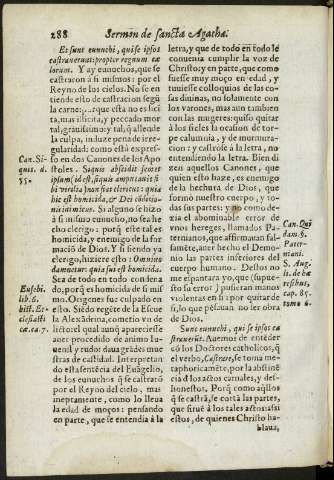 288
Sermon de sancta Agatha.
Et sunt eunuchi, qui se ipsos
castraverunt propter regnum cæ
lorum. Y ay eunuchos, que se
castraron à si mismos: por el
Reyno de los cielos. No se en
tiende esto de castracion segũ
la carne:
mas ilicita, y peccado mor
tal, grauissimo: y tal, q̃ allende
la culpa, induze pena de irre-
gularidad: como està expres-
so en dos Canones de los Apo
stoles. Siquis absciderit
ipsum
hic est homicida, & Dei
inimicus. Si alguno se hizo
à si mismo eunucho, no sea he
cho clerigo: porq̃ este tal es
homicida, y enemigo de la for
maciõ de Dios. Y si siendo ya
clerigo, hiziere esto: Omnino
damnetur: quia sui est homicida.
Sea de todo en todo condena
do, porq̃ es homicida de si mis
mo. Origenes fue culpado en
esto. Siẽdo regẽte de la Escue
la Alexãdrina, cometio vn de
licto: el qual aunq̃ aparecie sse
auer procedido de animo iu-
uenil y rudo: daua grãdes mue
stras de castidad. Interpretan
do esta sentẽcia del Euãgelio,
de los eunuchos q̃ se castrarõ
por el Reyno del cielo, mas
ineptamente, como lo lleua
la edad de moços: pensando
en parte, que se entendia à la
Can. Si-
quis. d.
55.
Eusebi.
lib. 6.
hist. Ec-
clesiasti
cæ. ca. 7.
letra, y que de todo en todo le
conuenia cumplir la voz de
Christo: y en parte, que como
fuesse muy moço en edad, y
tuuiesse colloquios de las co-
sas diuinas, no solamente con
los varones, mas tambien
con las mugeres: quiso quitar
à los fieles la ocasion de tor-
pe calumnia, y de murmura-
cion: y castrose à la letra, no
entendiendo la letra. Bien di
zen aquellos Canones, que
quien esto haze, es enemigo
de la hechura de Dios, que
formò nuestro cuerpo, y to-
das sus partes: y no como de-
zia el abominable error de
vnos hereges, llamados Pa-
ternianos, que affirmauan fal-
samẽte, auer hecho el Demo-
nio las partes inferiores del
cuerpo humano. Destos no
me espantara yo, que (supue-
sto su error) pusieran manos
violentas en si: por quitar de
si, lo que pẽsauan no ser obra
de Dios.
Sunt eunuchi, qui se ipsos ca
strauerũt. Auemos de entẽder
cõ los Doctores catholicos, q̃
el verbo, Castrare, se toma me
taphoricamẽte, por la abstinẽ
cia d̃ los actos carnales, y des-
honestos. Porq̃ como aq̃llos
q̃ se castrã, se cortã las partes,
que siruẽ à los tales actos: assi
estos, de quienes Christo ha-
blaua,
Can. Qui
dam. 9.
Pater-
niani.
S. Aug.
li. de hæ
resibus,
cap. 85.
tomo 6.